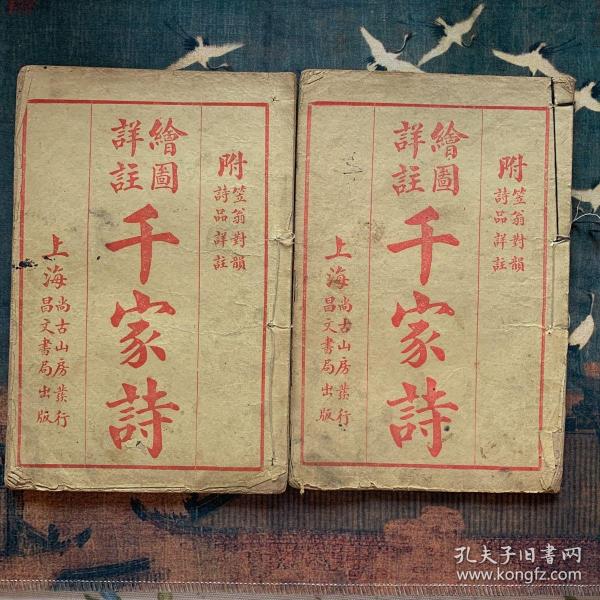 附
笠翁對韻
詩品詳註
繪圖
詳註
千家詩
上海
尚古山房發行
昌文書局出版
附
笠翁對韻
詩品詳註
繪圖
詳註
千家詩
上海
尚古山房發行
昌文書局出版
孔夫子旧书网
www.kongfz.com